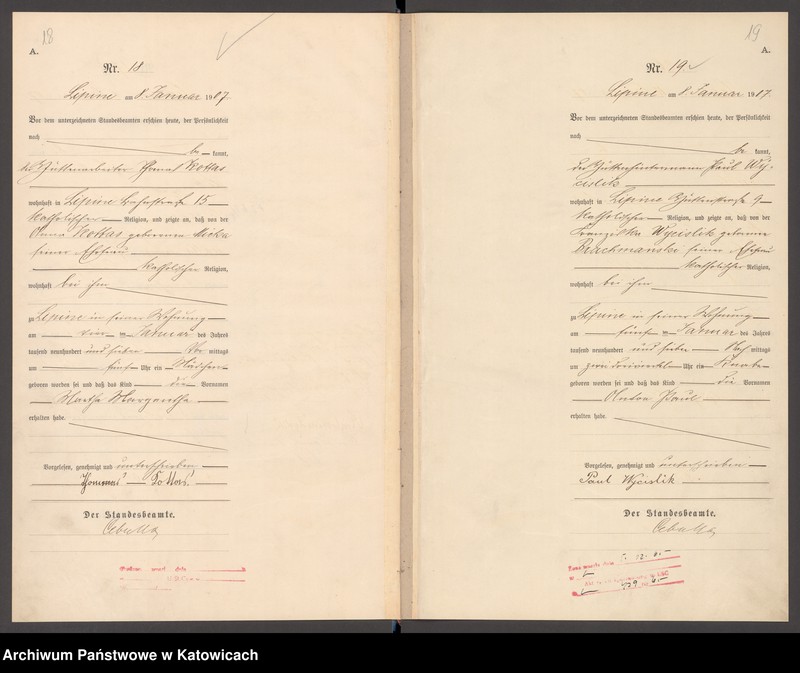 18
A.
Nr. 18
Lipine am 8. Januar 1907
Vor dem unterzeichneten Standesbeamten erschien heute, der Persönlichkeit
nach
be kannt,
der Hüttenarbeiter Thomas Kottas
wohnhaft in Lipine Bahnstraße 15
katholischer Religion, und zeigte an, daß von der
Anna Kottas geborenen
seiner Ehefrau
katholischer Religion,
wohnhaft bei ihm
zu Lipine in seiner Wohnung
am vier ten Januar des Jahres
tausend neunhundert und sieben Vor mittags
um fünf Uhr ein Mädchen
geboren worden sei und daß das Kind die Vornamen
Martha Margaretha
erhalten habe.
Vorgelesen, genehmigt und unterschrieben
Thommas Kottas
Der Standesbeamte.
19
A.
Nr. 19
Lipine am 8. Januar 1907
Vor dem unterzeichneten Standesbeamten erschien heute, der Persönlichkeit
nach
be kannt,
der Paul Wy-
cislik
wohnhaft in Lipine Hüttenstraße 9
katholischer Religion, und zeigte an, daß von der
Franziska Wycislik geborenen
Brachmanski seiner Ehefrau
katholischer Religion,
wohnhaft bei ihm
zu Lipine in seiner Wohnung
am fünf ten Januar des Jahres
tausend neunhundert und sieben Nach mittags
um zwei dreiviertel Uhr ein Knabe
geboren worden sei und daß das Kind die Vornamen
Anton Paul
erhalten habe.
Vorgelesen, genehmigt und unterschrieben
Paul Wycislik
Der Standesbeamte.
Archiwum Państwowe w Katowicach